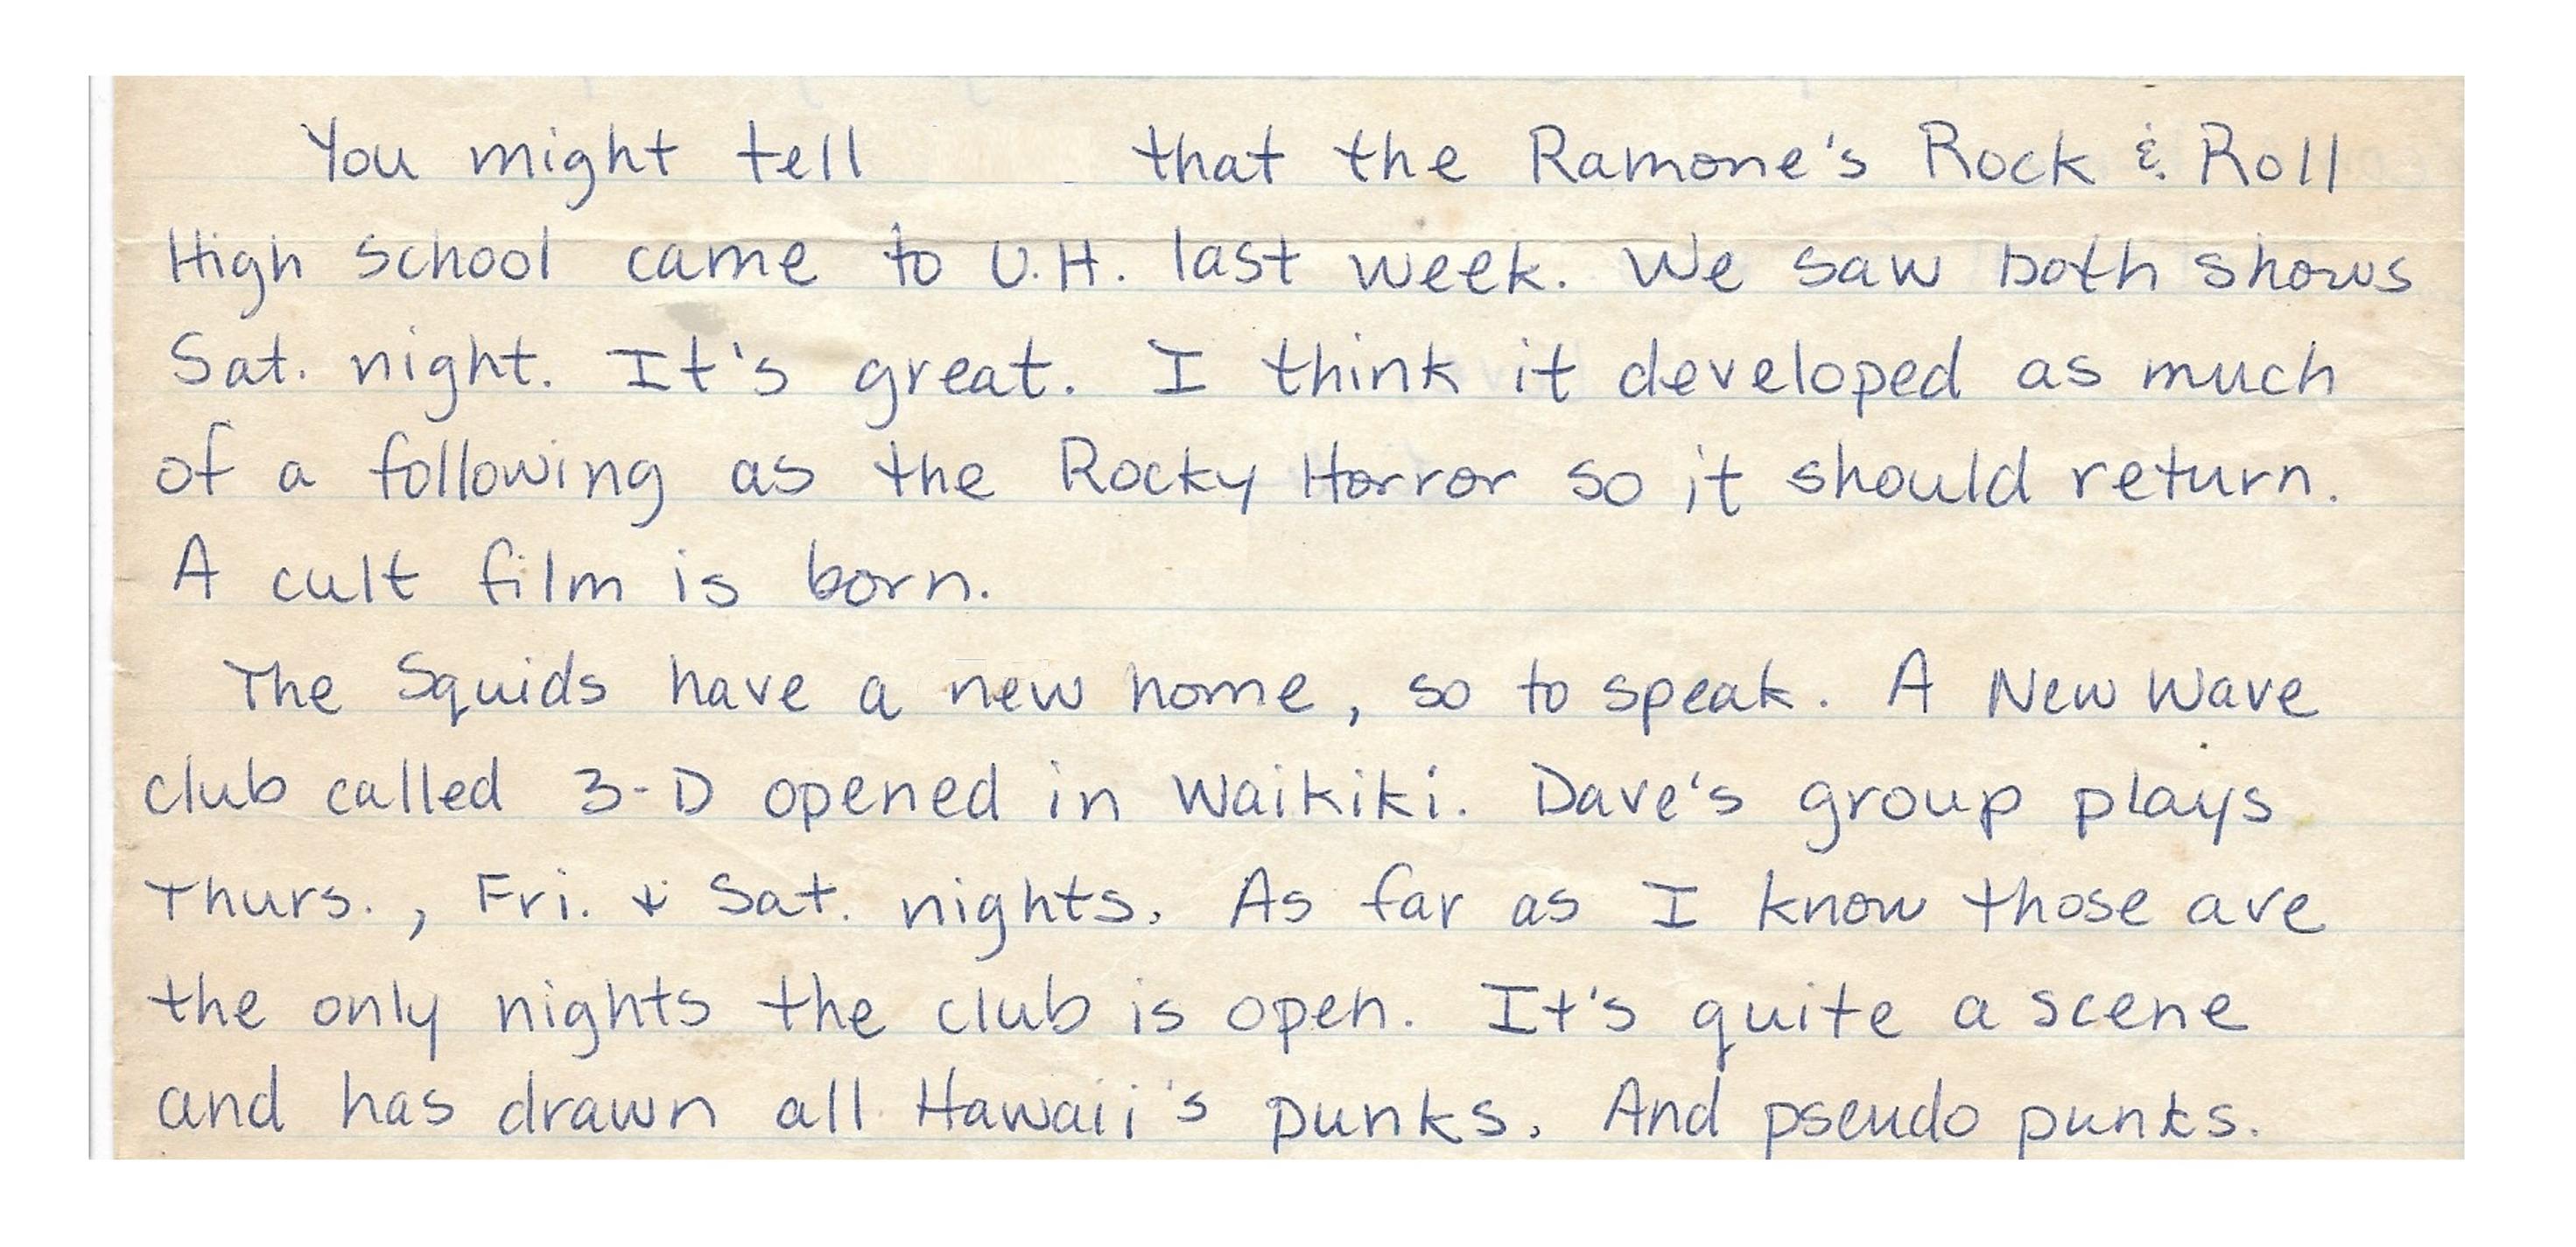 You might tell that the Ramone's Rock & Roll
High School came to U.H. last week. We saw both shows
Sat. night. It's great. I think it developed as much
of a following as the Rocky Horror so it should return.
A cult film is born.
The Squids have a new home, so to speak. A New Wave
club called 3-D opened in Waikiki. Dave's group plays
Thurs., Fri. & Sat. nights. As far as I know those are
the only nights the club is open. It's quite a scene
and has drawn all Hawaii's punks. And pseudo punks.